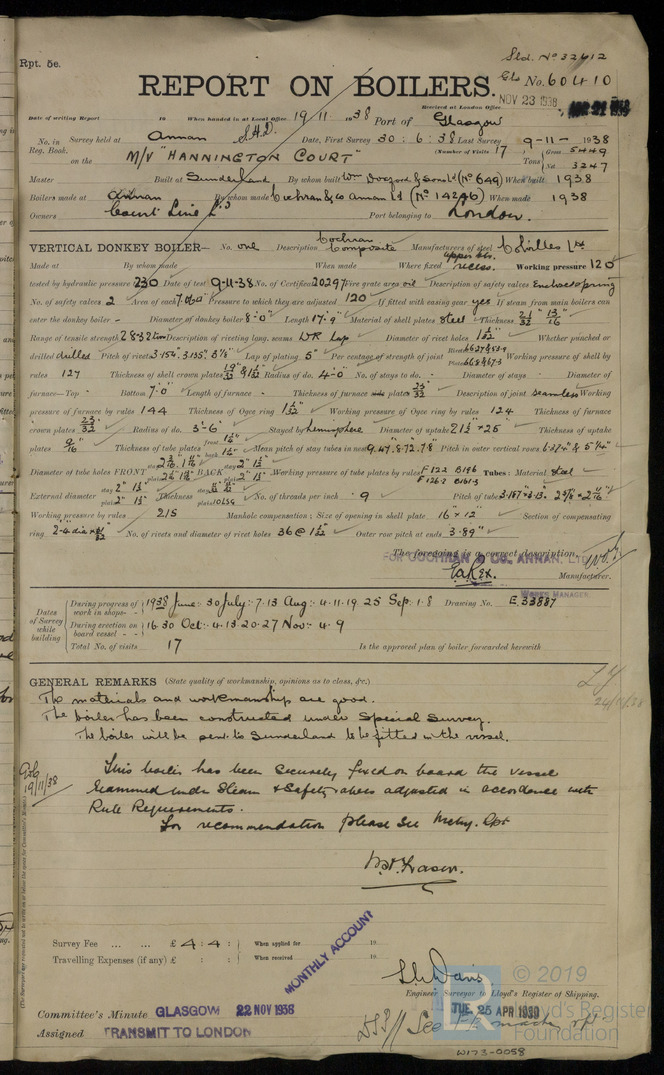 Rpt. 5e.
Sld. No 32412
REPORT ON BOILERS.
Gls No. 60410
Received at London Office
NOV 23 1938
Date of writing Report 19 When handed in at Local Office 19 11 1938 Port of Glasgow
No. in Reg. Book. Survey held at Annan Date, First Survey 30 : 6 : 38 Last Survey 9-11- 1938
on the M/V "HANNINGTON COURT" (Number of Visits 17) Tons Gross 5449 Net 3247
Master Built at Sunderland By whom built Wm Doxford & Sons Ld (No 649) When built 1938
Boilers made at Annan By whom made Cochran & Co Annan Ld (No 14246) When made 1938
Owners Court Line Ld Port belonging to London.
VERTICAL DONKEY BOILER— No. one Description Cochran Composite Manufacturers of steel Colvilles Ltd
Made at By whom made When made Where fixed upper btn. recess. Working pressure 120
tested by hydraulic pressure 230 Date of test 9-11-38 No. of Certificate 20297 Fire grate area oil Description of safety valves spring
No. of safety valves 2 Area of each 7.06" Pressure to which they are adjusted 120 If fitted with easing gear yes If steam from main boilers can
enter the donkey boiler - Diameter of donkey boiler 8'-0" Length 17'-9" Material of shell plates steel Thickness 21/32" 13/16"
Range of tensile strength 28-32 tons Description of riveting long. seams DR Lap Diameter of rivet holes 1 1/32" Whether punched or
drilled drilled Pitch of rivets 3.154, 3.155, 3 1/8" Lap of plating 5" Per centage of strength of joint Rivets Plates Working pressure of shell by
rules 127 Thickness of shell crown plates 19/32" & 1 1/32" Radius of do. 4'-0" No. of stays to do. - Diameter of stays - Diameter of
furnace—Top - Bottom 7'-0" Length of furnace - Thickness of furnace plates 23/32" Description of joint seamless Working
pressure of furnace by rules 144 Thickness of Ogee ring 1 1/32" Working pressure of Ogee ring by rules 124 Thickness of furnace
crown plates 23/32" Radius of do. 3'-6" Stayed by hemisphere Diameter of uptake 21 1/2" × 25" Thickness of uptake
plates 9/16" Thickness of tube plates front back Mean pitch of stay tubes in nests 9.47 8.72 7.8" Pitch in outer vertical rows 6 3/4" & 5 1/4"
Diameter of tube holes FRONT stay plain BACK stay plain Working pressure of tube plates by rules Tubes: Material steel
External diameter stay 2" plain 2" Thickness No. of threads per inch 9 Pitch of tubes
Working pressure by rules 215 Manhole compensation: Size of opening in shell plate 16" × 12" Section of compensating
ring No. of rivets and diameter of rivet holes 36 @ 1 1/32" Outer row pitch at ends 3.89"
The foregoing is a correct description,
FOR COCHRAN & CO., ANNAN, LTD
Manufacturer.
WORKS MANAGER
Dates of Survey while building
During progress of work in shops - - 1938 June: 30 July: 7.13 Aug: 4.11.19.25 Sep: 1.8 Drawing No. E.33887
During erection on board vessel - - 16.30 Oct: 4.13.20.27 Nov: 4.9
Total No. of visits 17 Is the approved plan of boiler forwarded herewith
GENERAL REMARKS (State quality of workmanship, opinions as to class, &c.)
24/11/38
The materials and workmanship are good.
The boiler has been constructed under Special Survey.
The boiler will be sent to Sunderland to be fitted in the vessel.
19/11/38
This boiler has been securely fixed on board the vessel
examined under Steam & Safety valves adjusted in accordance with
Rule Requirements.
For recommendation please see Mchy. Rpt
Survey Fee ... ... £ 4 : 4 : When applied for 19
Travelling Expenses (if any) £ : : When received 19
MONTHLY ACCOUNT
Engineer Surveyor to Lloyd's Register of Shipping.
Committee's Minute GLASGOW 22 NOV 1938
TUE. 25 APR 1939
Assigned TRANSMIT TO LONDON
© 2019
Lloyd's Register Foundation
W173-0058